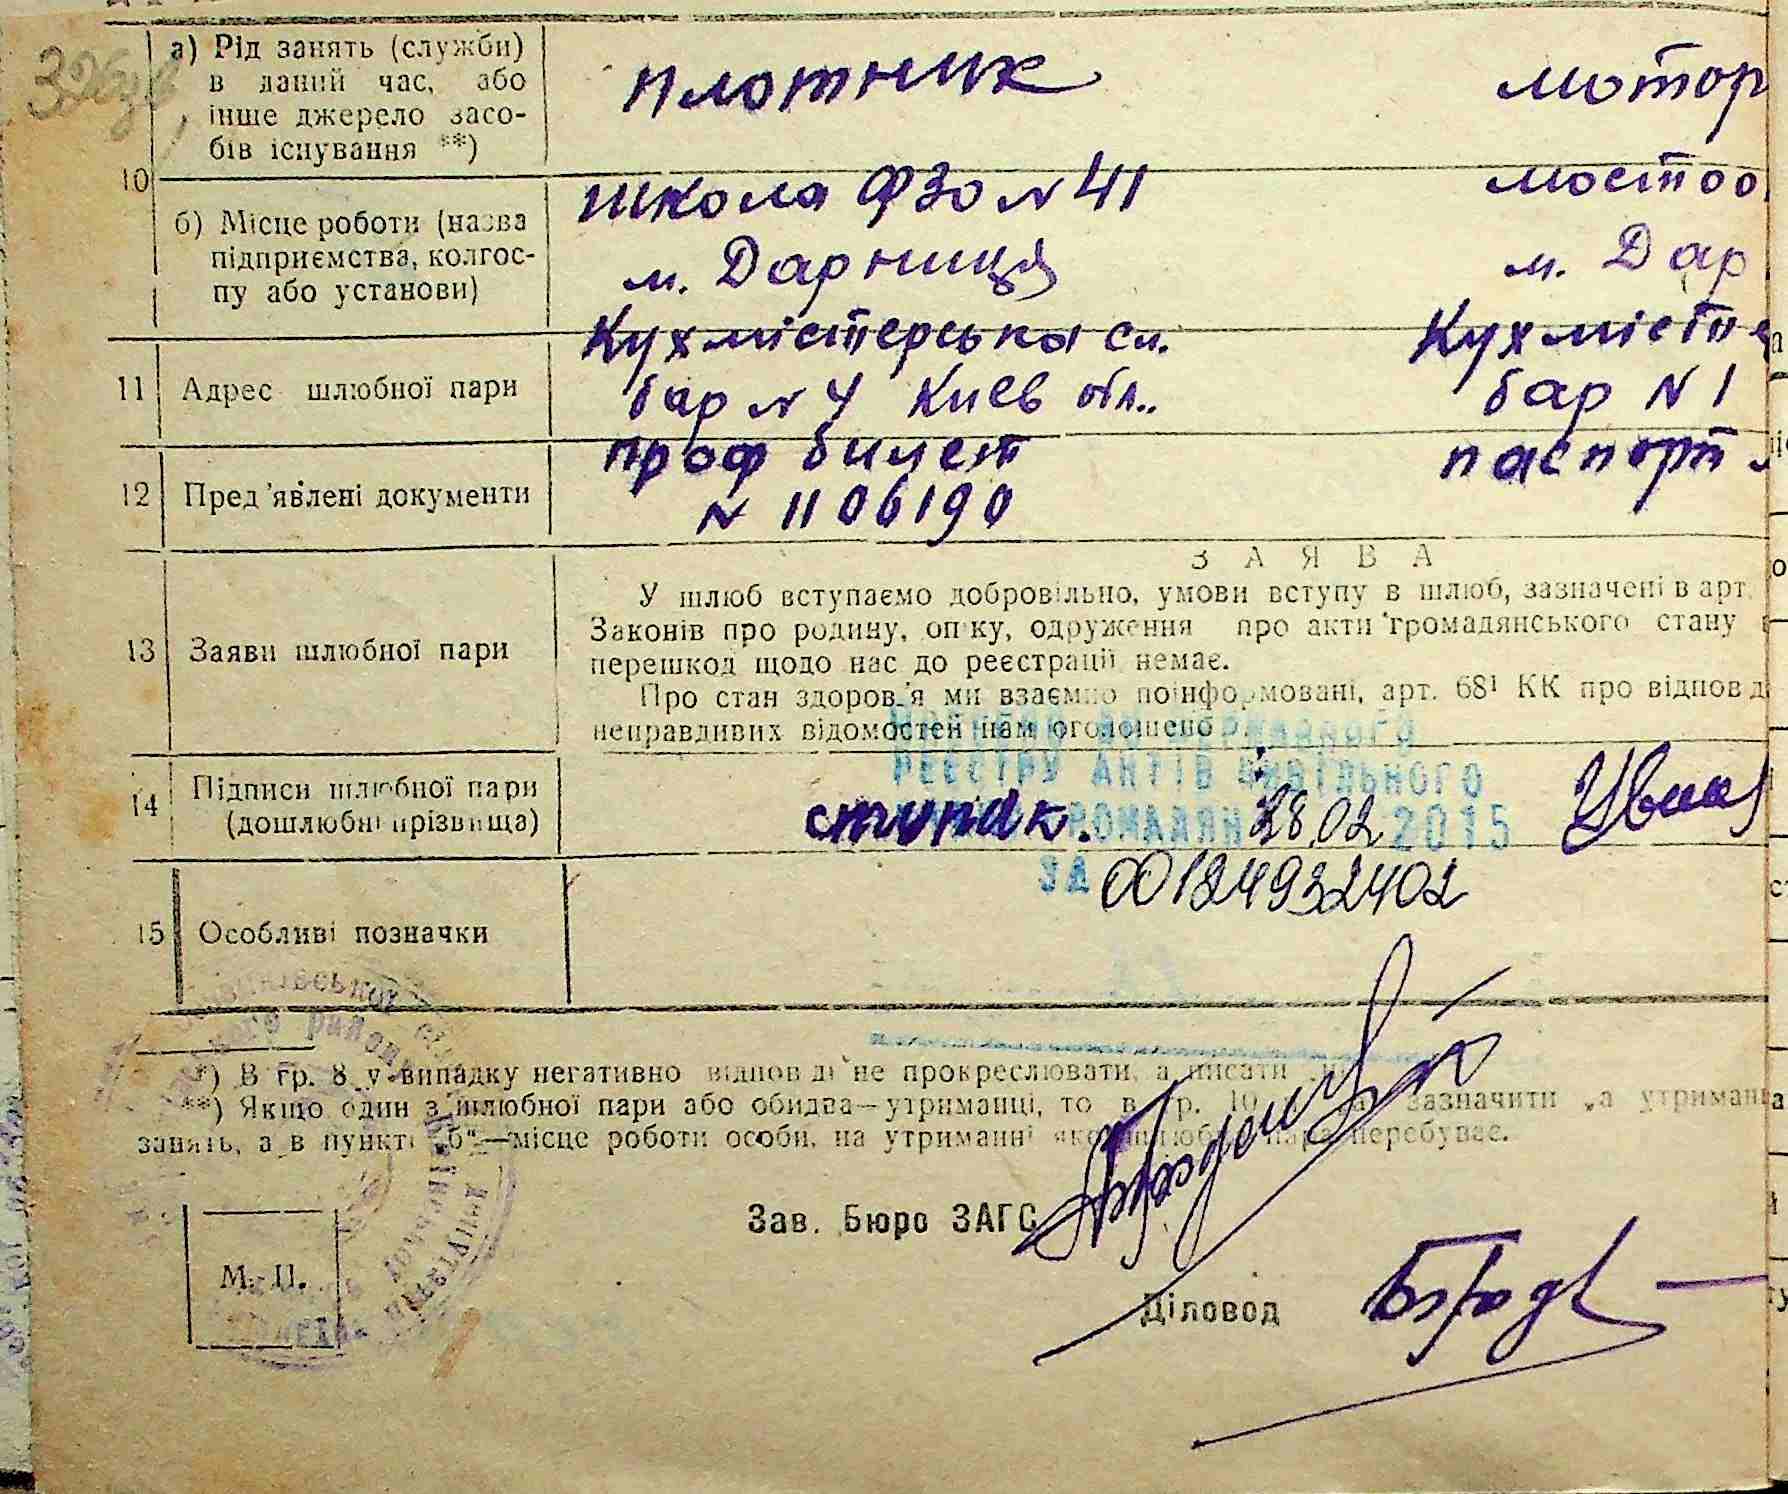 а) Рід занять (служби)
в даний час, або
інше джерело засо-
бів існування **)
плотник
мотор
10
б) Місце роботи (назва
підприємства, колгос-
пу або установи)
школа ФЗО № 41
м. Дарниця
мостоо
м. Дар
11
Адрес шлюбної пари
Кухмістерська сл.
бар № 4 Киев обл..
Кухмісте
бар № 1
12
Пред'явлені документи
проф билет
№ 1106190
паспорт
ЗАЯВА
13
Заяви шлюбної пари
У шлюб вступаємо добровільно, умови вступу в шлюб, зазначені в арт.
Законів про родину, опіку, одруження про акти громадянського стану
перешкод щодо нас до реєстрації немає.
Про стан здоров'я ми взаємно поінформовані, арт. 68¹ КК про відповід
неправдивих відомостей нам оголошено
державного
реєстру актів цивільного
14
Підписи шлюбної пари
(дошлюбні прізвища)
стипак.
громадян 28.02 2015
за 00124932402
15
Особливі позначки
*) В гр. 8 у випадку негативної відповіді не прокреслювати, а писати
**) Якщо один з шлюбної пари або обидва—утриманці, то в гр. 10 зазначити „а утриман
занять, а в пункті „б"—місце роботи особи, на утриманні якої шлюбна пара перебуває.
Зав. Бюро ЗАГС
М. П.
Діловод